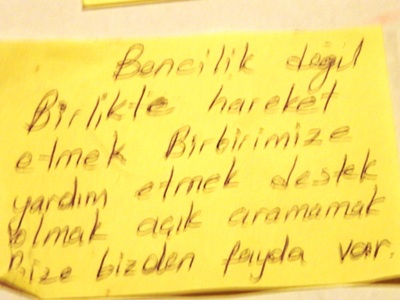 Bencilik değil
Birlikte hareket
etmek Birbirimize
yardım etmek destek
olmak açık aramamak
Bize bizden fayda var.